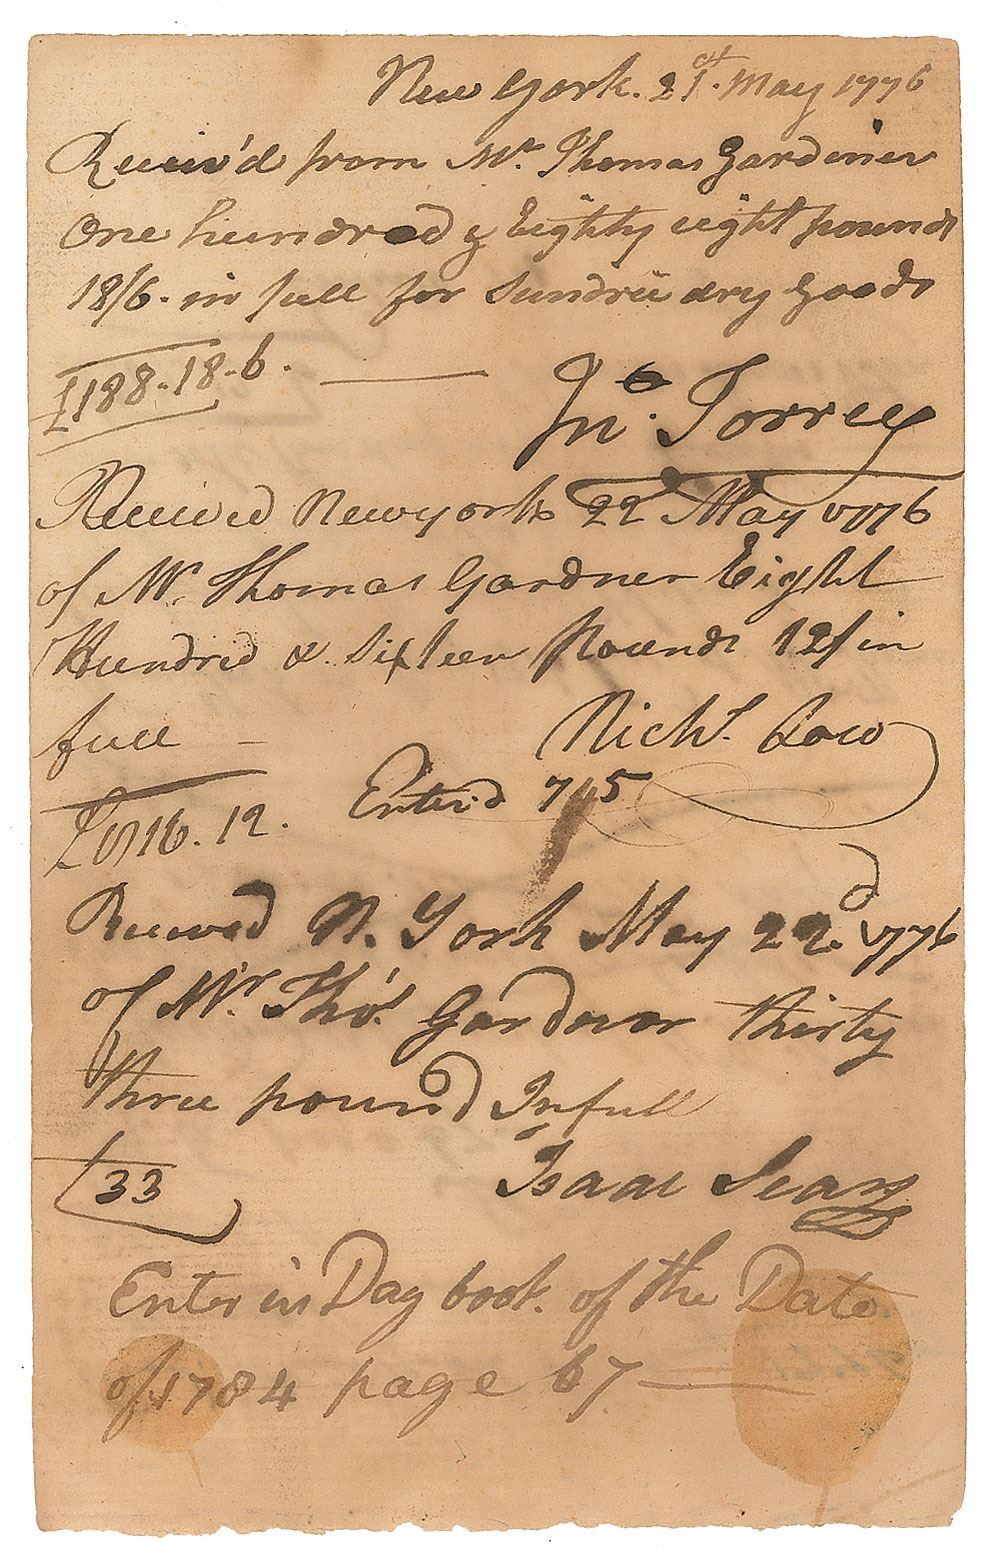 New York. 21st. May 1776
Receiv'd from Mr. Thomas Gardiner
One hundred & Eighty eight pounds
18/6. in full for Sundrie dry Goods
£188-18-6.
Jno. Torrey
Received Newyork 22d May 1776
of Mr. Thomas Gardner Eight
Hundred & Sixteen Pounds 12/ in
full
Nichs. Low
£816.12.
Enter'd
Received N. York May 22d. 1776
of Mr. Thos. Gardner thirty
three pound In full
£33
Isaac Sears
Enter in Day book. of the Date
of 1784 page 67